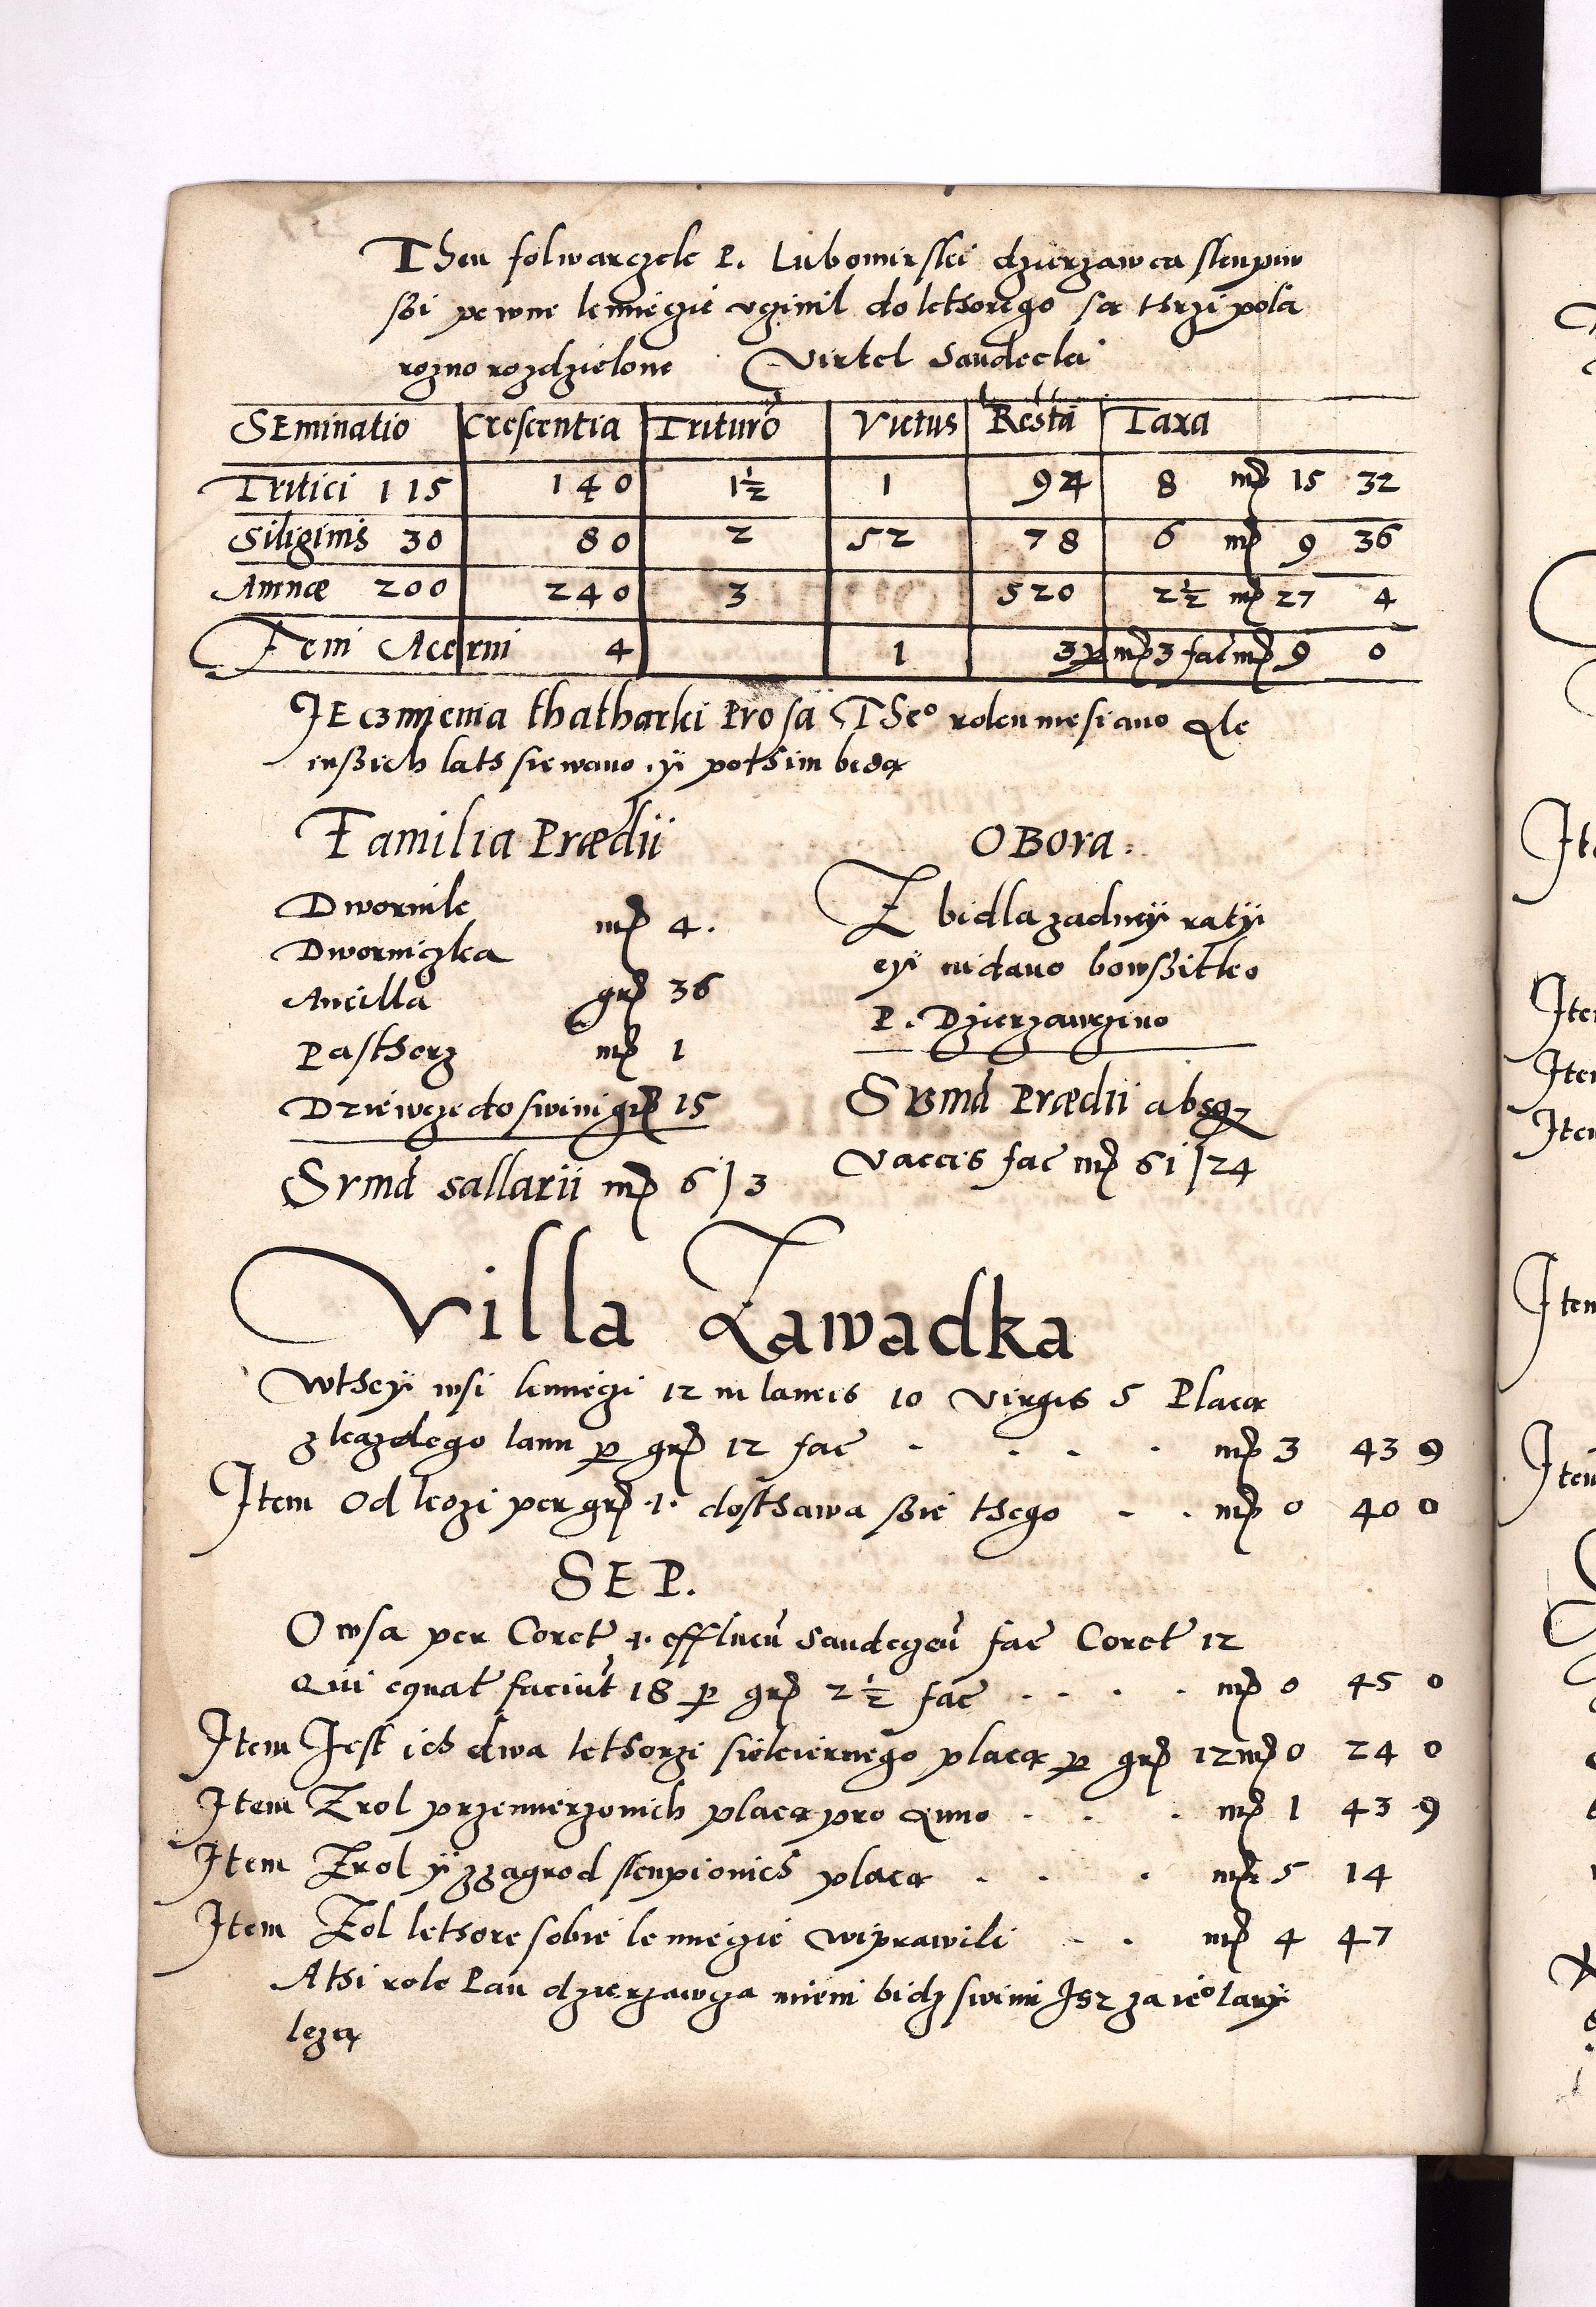 Then folwarczek P. Lubomirski dzierzawca skupiw
ssi pewne kmiecie vczinil do kthorego są thrzi pola
rozno rozdzielone Virtel Sandecka
SEminatio Crescentia Trituro Victus Resta Taxa
Tritici 115 140 1½ 1 94 8 mr 15 32
Siliginis 30 80 2 52 78 6 mr 9 36
Avenæ 200 240 3 520 2½ mr 27 4
Feni Acerni 4 1 3 p mr 3 fac mr 9 0
JEczmienia thatharki Prosa Theo roku niesiano Ale
inssich lath siewano yi pothim bedą
Familia Prædii
Dwornik
Dworniczka mr 4.
Ancilla gr 36
Pastherz mr 1
Dziewcze do swini gr 15
Svmā sallarii mr 6 | 3
OBora:
Z bidla zadneÿ ratÿ
eÿ nidano bo wssitko
P. Dzierzawczino
Svmā Prædii absq
Vaccis fac mr 61 | 24
Villa Zawadka
Wtheÿ wsi kmieci 12 in laneis 10 virgis 5 Placą
z kazdego lanu p gr 12 fac mr 3 43 9
Item Od kozi per gr 1 dosthawa ssie thego mr 0 40 0
SEP.
Owsa per Coret 1 effluen Sandecen fac Coret 12
Qui equat faciut 18 p gr 2½ fac mr 0 45 0
Item Jest ich dwa kthorzi siekiernego placą p gr 12 mr 0 24 0
Item Z rol przemierzonich placą pro Anno mr 1 43 9
Item Z rol ÿ z zagrod skupionich placą mr 5 14
Item Z ol kthore sobie kmiecie wiprawili mr 4 47
A thi role Pan dzierzawcza mieni bidz swimi Isz za ieo lanÿ
lezą